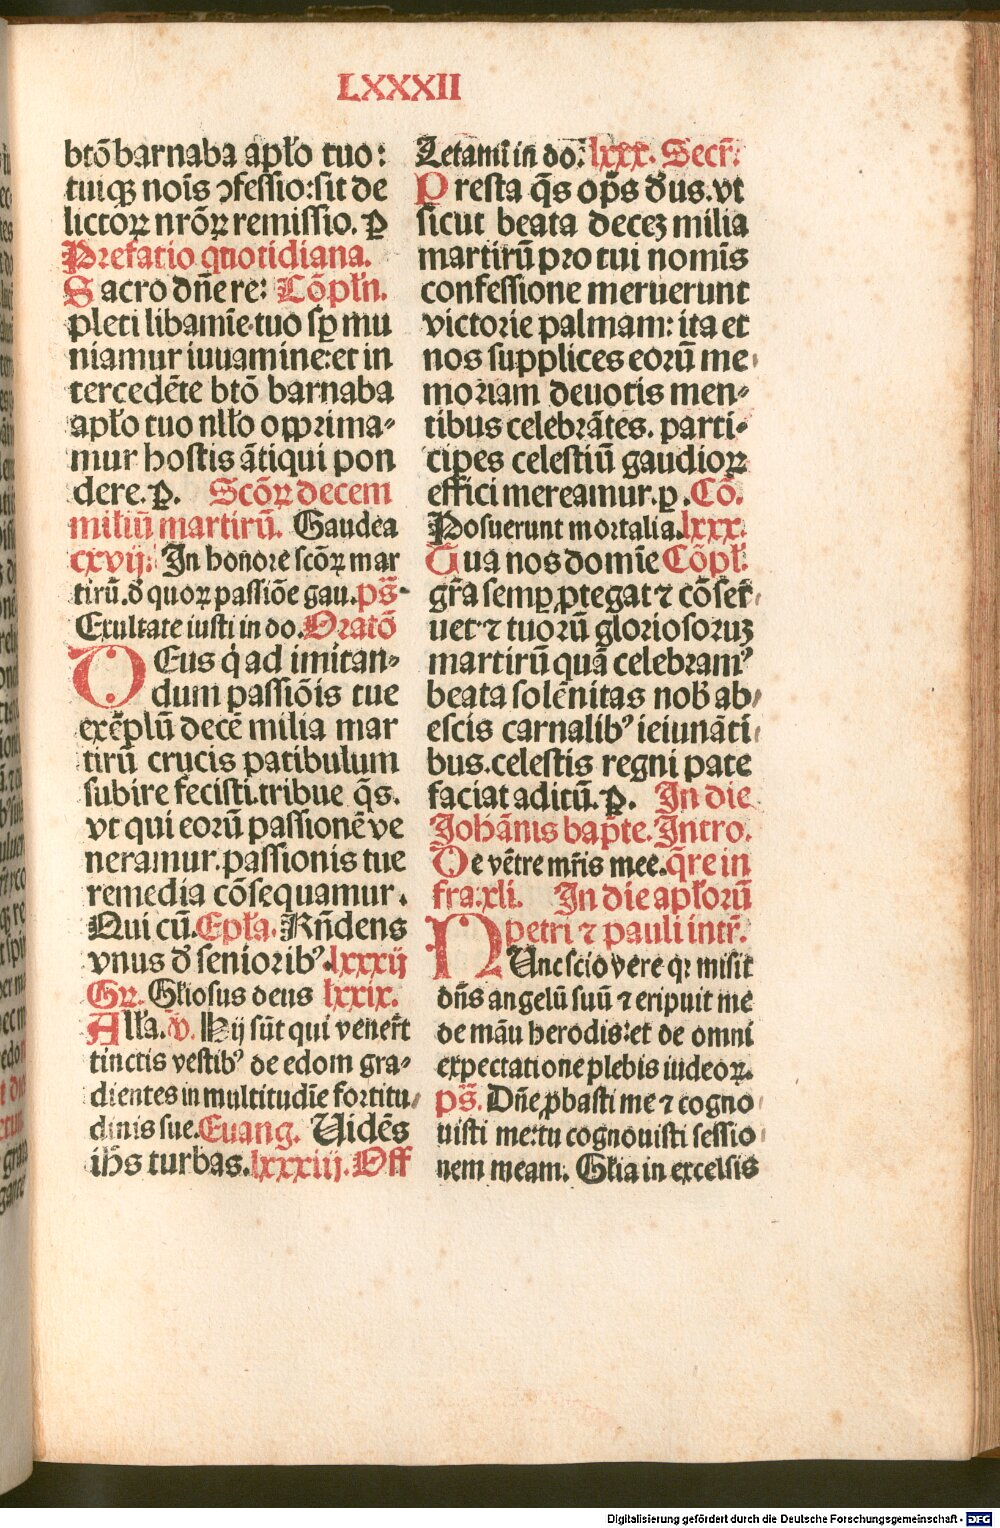 LXXXII
btō barnaba apło tuo:
tuiqꝫ noīs ɔfessio: sit de
lictoꝝ nrōꝝ remissio. ꝑ
Prefatio quotidiana.
Sacro dñe re: Cōpłn.
pleti libamīe tuo sꝑ mu
niamur iuuamine: et in
tercedēte btō barnaba
apło tuo nłło opprima-
mur hostis ātiqui pon
dere. ꝑ. Scōꝝ decem
miliū martirū. Gaudea
cxvij. In honore scōꝝ mar
tirū. đ quoꝝ passiōe gau. ps̄
Exultate iusti in do. Oratō
DEus q̇ ad imitan-
dum passiōis tue
exēplū decē milia mar
tirū crucis patibulum
subire fecisti. tribue q̄s.
vt qui eorū passionē ve
neramur. passionis tue
remedia cōsequamur.
Qui cū. Epła. Rn̄dens
vnus đ seniorib⁹. lxxxij
Gr. Głiosus deus lxxix.
Ałła. ꝟ. Hij sūt qui venerūt
tinctis vestib⁹ de edom gra-
dientes in multitudīe fortitu
dinis sue. Euang. Uidēs
ih̄s turbas. lxxxiij. Off
Letamī in do. lxxx. Secr̄.
Presta q̄s op̄s đus. vt
sicut beata decez milia
martirū pro tui nomīs
confessione meruerunt
victorie palmam: ita et
nos supplices eorū me
moriam deuotis men-
tibus celebrātes. parti-
cipes celestiū gaudioꝝ
effici mereamur. ꝑ. Cō.
Posuerunt mortalia. lxxx.
Tua nos domīe Cōpł.
gr̄a semꝑ ꝓtegat ⁊ cōser
uet ⁊ tuorū gloriosoruꝫ
martirū quā celebram⁹
beata solēnitas nob̄ ab
escis carnalib⁹ ieiunāti
bus. celestis regni pate
faciat aditū. ꝑ. In die
Johānis bap̄te. Intro.
De vētre mr̄is mee. q̄re in
fra. xli. In die apłorū
petri ⁊ pauli intr̄.
NUnc scio vere qꝛ misit
dn̄s angelū suū ⁊ eripuit me
de māu herodis: et de omni
expectatione plebis iudeoꝝ.
ps̄. Dn̄e ꝓbasti me ⁊ cogno
uisti me: tu cognouisti sessio
nem meam. Głia in excelsis
Digitalisierung gefördert durch die Deutsche Forschungsgemeinschaft - DFG